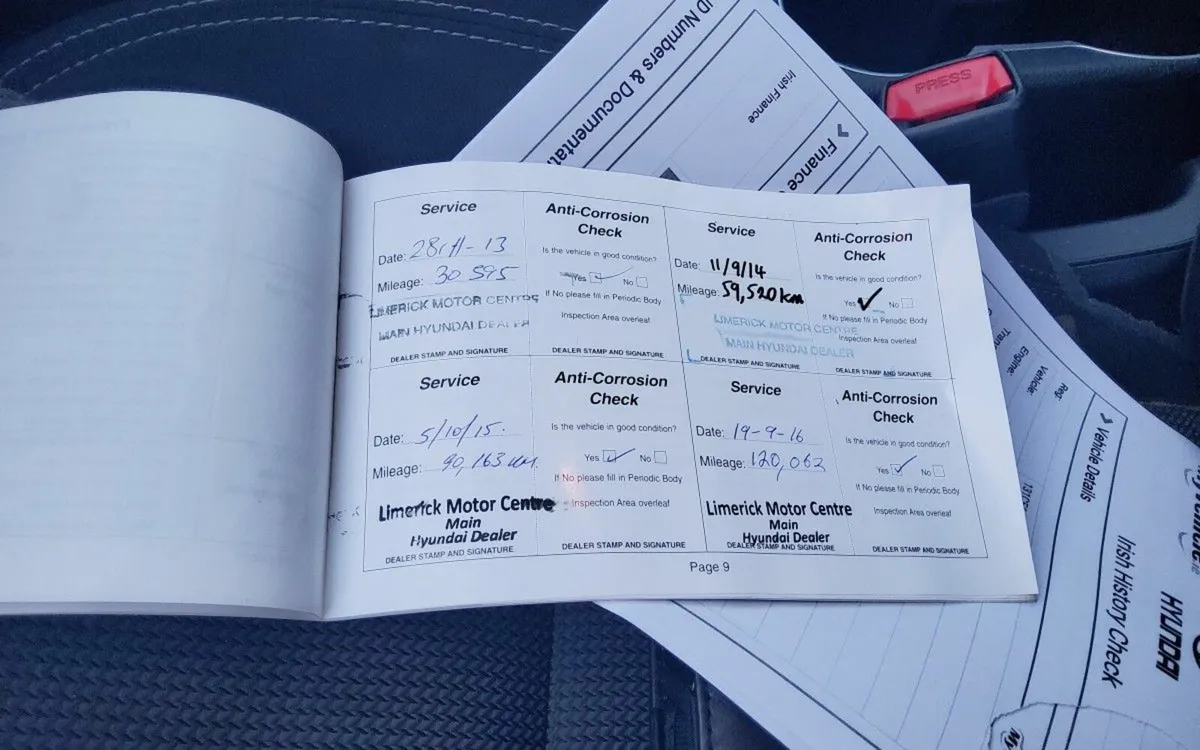 Service
Date: 28th-11-13
Mileage: 30 595
LIMERICK MOTOR CENTRE
MAIN HYUNDAI DEALER
DEALER STAMP AND SIGNATURE
Anti-Corrosion
Check
Is the vehicle in good condition?
Yes No
If No please fill in Periodic Body
Inspection Area overleaf
DEALER STAMP AND SIGNATURE
Service
Date: 11/9/14
Mileage: 59,520km
LIMERICK MOTOR CENTRE
MAIN HYUNDAI DEALER
DEALER STAMP AND SIGNATURE
Anti-Corrosion
Check
Is the vehicle in good condition?
Yes No
If No please fill in Periodic Body
Inspection Area overleaf
DEALER STAMP AND SIGNATURE
Service
Date: 5/10/15.
Mileage: 90,163 km.
Limerick Motor Centre
Main
Hyundai Dealer
DEALER STAMP AND SIGNATURE
Anti-Corrosion
Check
Is the vehicle in good condition?
Yes No
If No please fill in Periodic Body
Inspection Area overleaf
DEALER STAMP AND SIGNATURE
Service
Date: 19-9-16
Mileage: 120,062
Limerick Motor Centre
Main
Hyundai Dealer
DEALER STAMP AND SIGNATURE
Anti-Corrosion
Check
Is the vehicle in good condition?
Yes No
If No please fill in Periodic Body
Inspection Area overleaf
DEALER STAMP AND SIGNATURE
Page 9
Numbers &
Irish Finance
Finance
PRESS
Reg:
Vehicle:
Engine:
Vehicle Details
Irish History Check
HYUNDAI
My